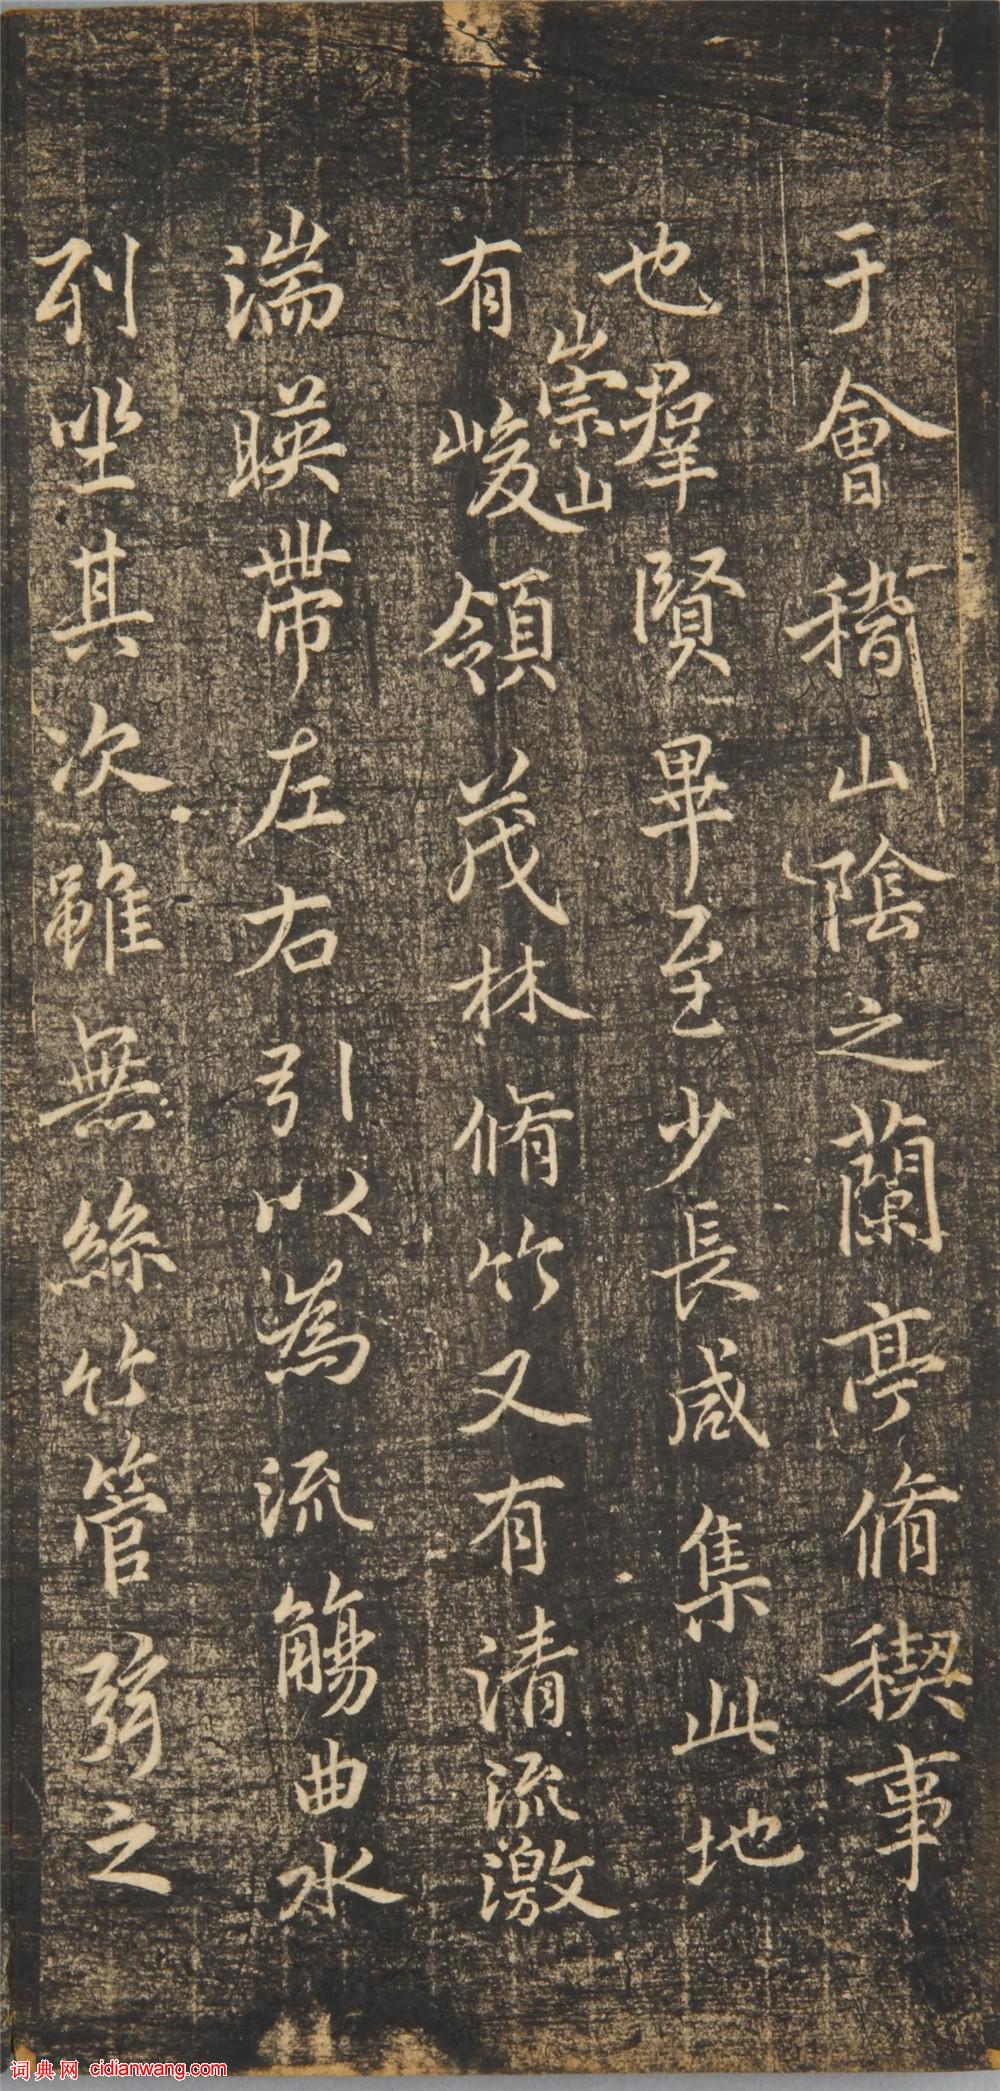 于會稽山陰之蘭亭脩稧事
也羣賢畢至少長咸集此地
崇山
有峻領茂林脩竹又有清流激
湍暎帶左右引以為流觴曲水
列坐其次雖無絲竹管弦之
词典网 cidianwang.com